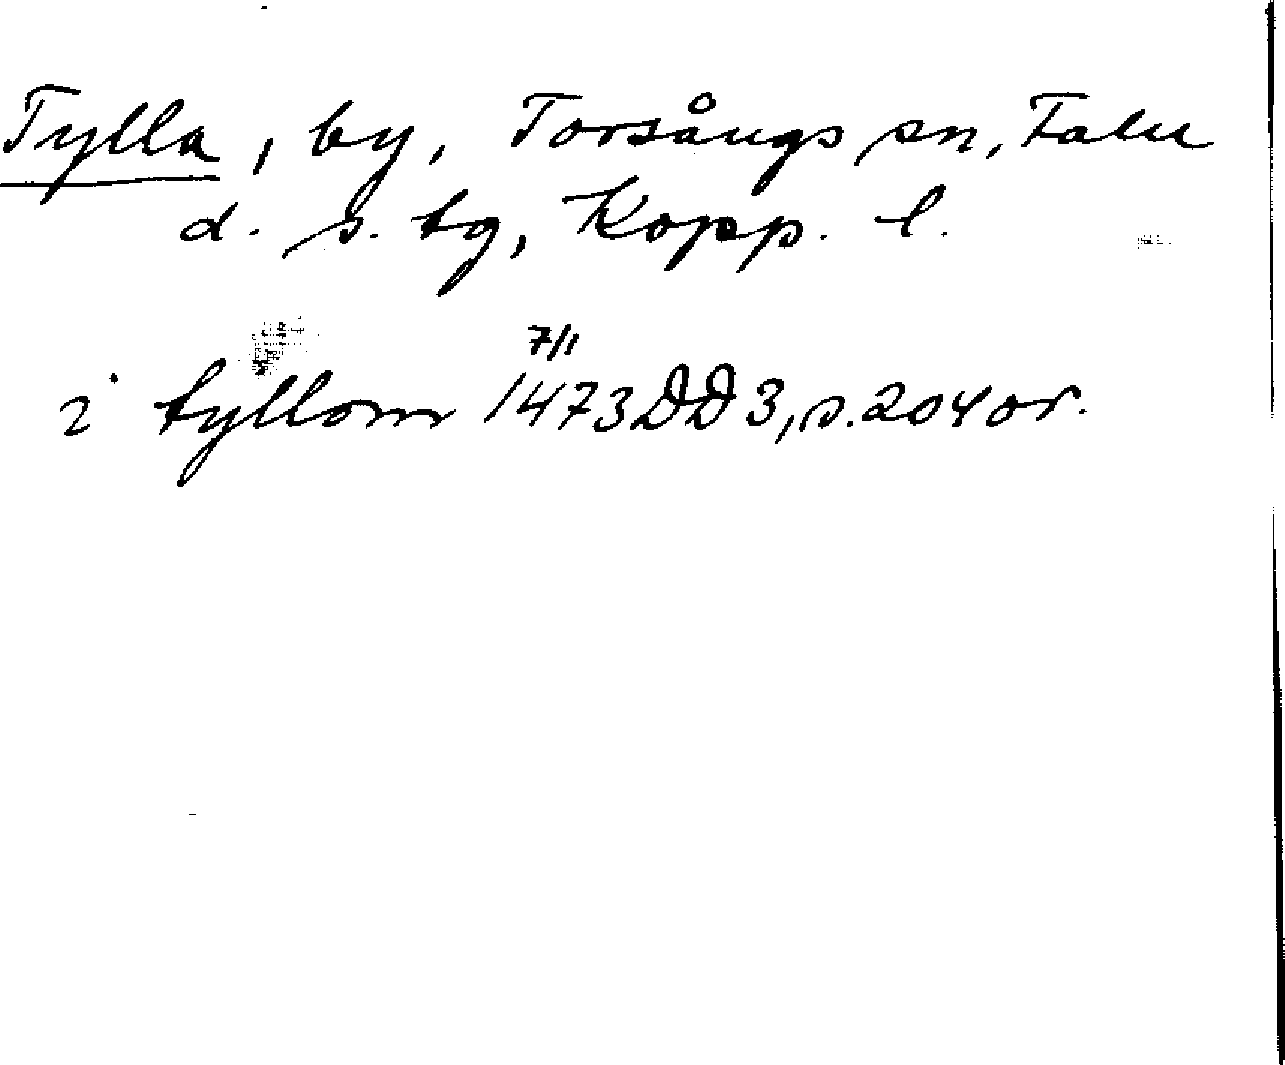 Tylla, by, Torsångs sn, Falu
d. s. tg, Kopp. l.
7/1
i tyllom 1473 DD 3, s. 204 or.